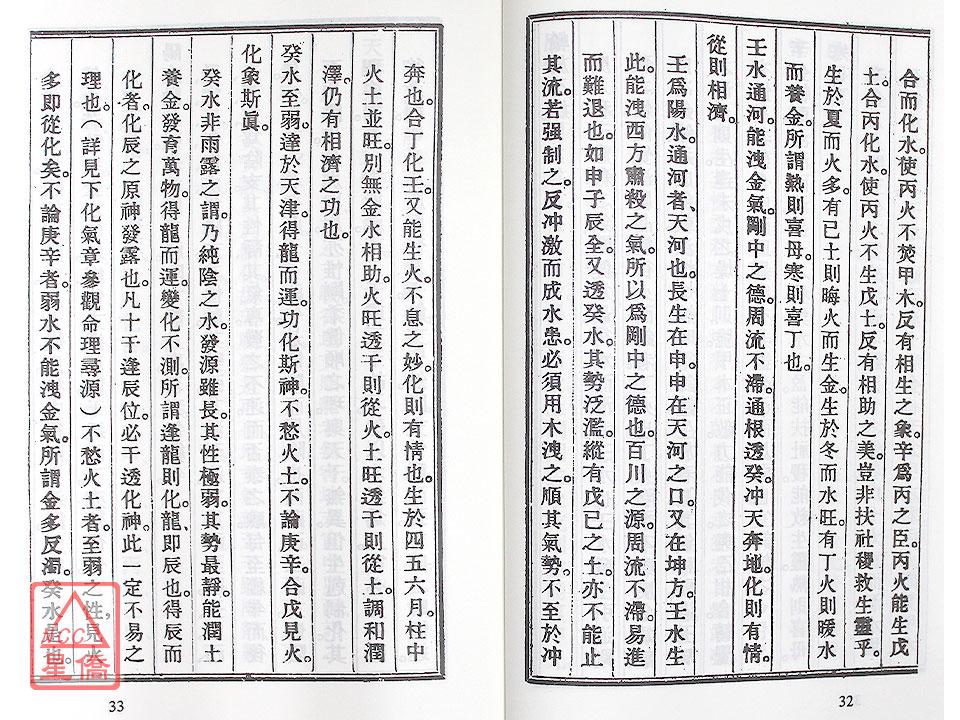 合而化水。使丙火不焚甲木。反有相生之象。辛爲丙之臣。丙火能生戊
土。合丙化水。使丙火不生戊土。反有相助之美。豈非扶社稷救生靈乎。
生於夏而火多。有己土則晦火而生金。生於冬而水旺。有丁火則暖水
而養金。所謂熱則喜母。寒則喜丁也。
壬水通河。能洩金氣。剛中之德。周流不滯。通根透癸。冲天奔地。化則有情。
從則相濟。
壬爲陽水。通河者、天河也。長生在申。申在天河之口。又在坤方。壬水生
此。能洩西方肅殺之氣。所以爲剛中之德也。百川之源。周流不滯。易進
而難退也。如申子辰全。又透癸水。其勢泛濫。縱有戊己之土。亦不能止
其流。若强制之。反冲激而成水患。必須用木洩之。順其氣勢。不至於冲
32
奔也。合丁化壬。又能生火。不息之妙。化則有情也。生於四五六月。柱中
火土並旺。別無金水相助。火旺透干則從火。土旺透干則從土。調和潤
澤。仍有相濟之功也。
癸水至弱。達於天津。得龍而運。功化斯神。不愁火土。不論庚辛。合戊見火。
化象斯眞。
癸水非雨露之謂。乃純陰之水。發源雖長。其性極弱。其勢最靜。能潤土
養金。發育萬物。得龍而運。變化不測。所謂逢龍則化。龍、即辰也。得辰而
化者。化辰之原神發露也。凡十干逢辰位。必干透化神。此一定不易之
理也。（詳見下化氣章參觀命理尋源）不愁火土者。至弱之性，見火
多即從化矣。不論庚辛者。弱水不能洩金氣。所謂金多反濁。癸水是也。
33
ACC
星僑